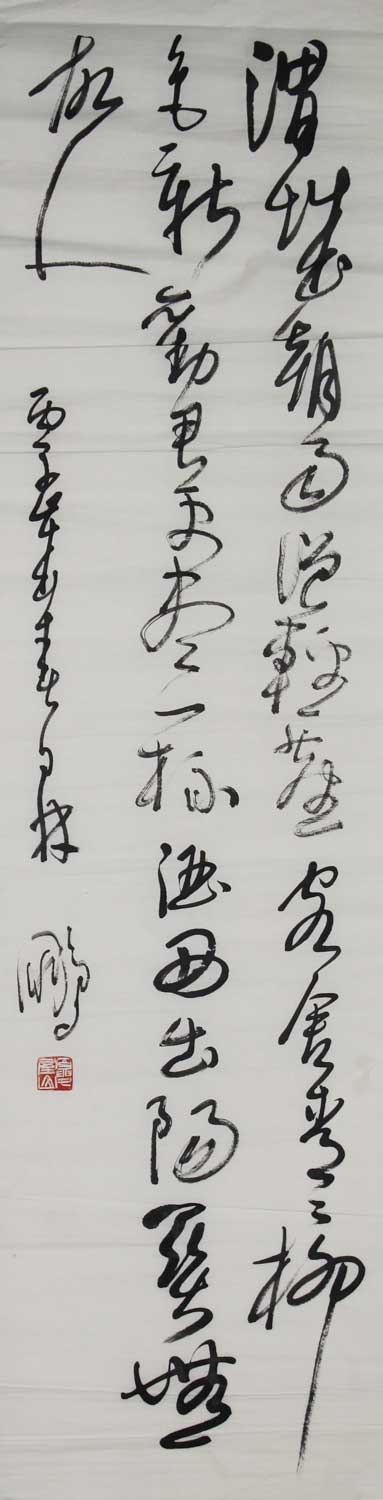 渭城朝雨浥輕塵客舍青〻柳
色新勸君更盡一杯酒西出陽關無
故人
丙子 林鵬